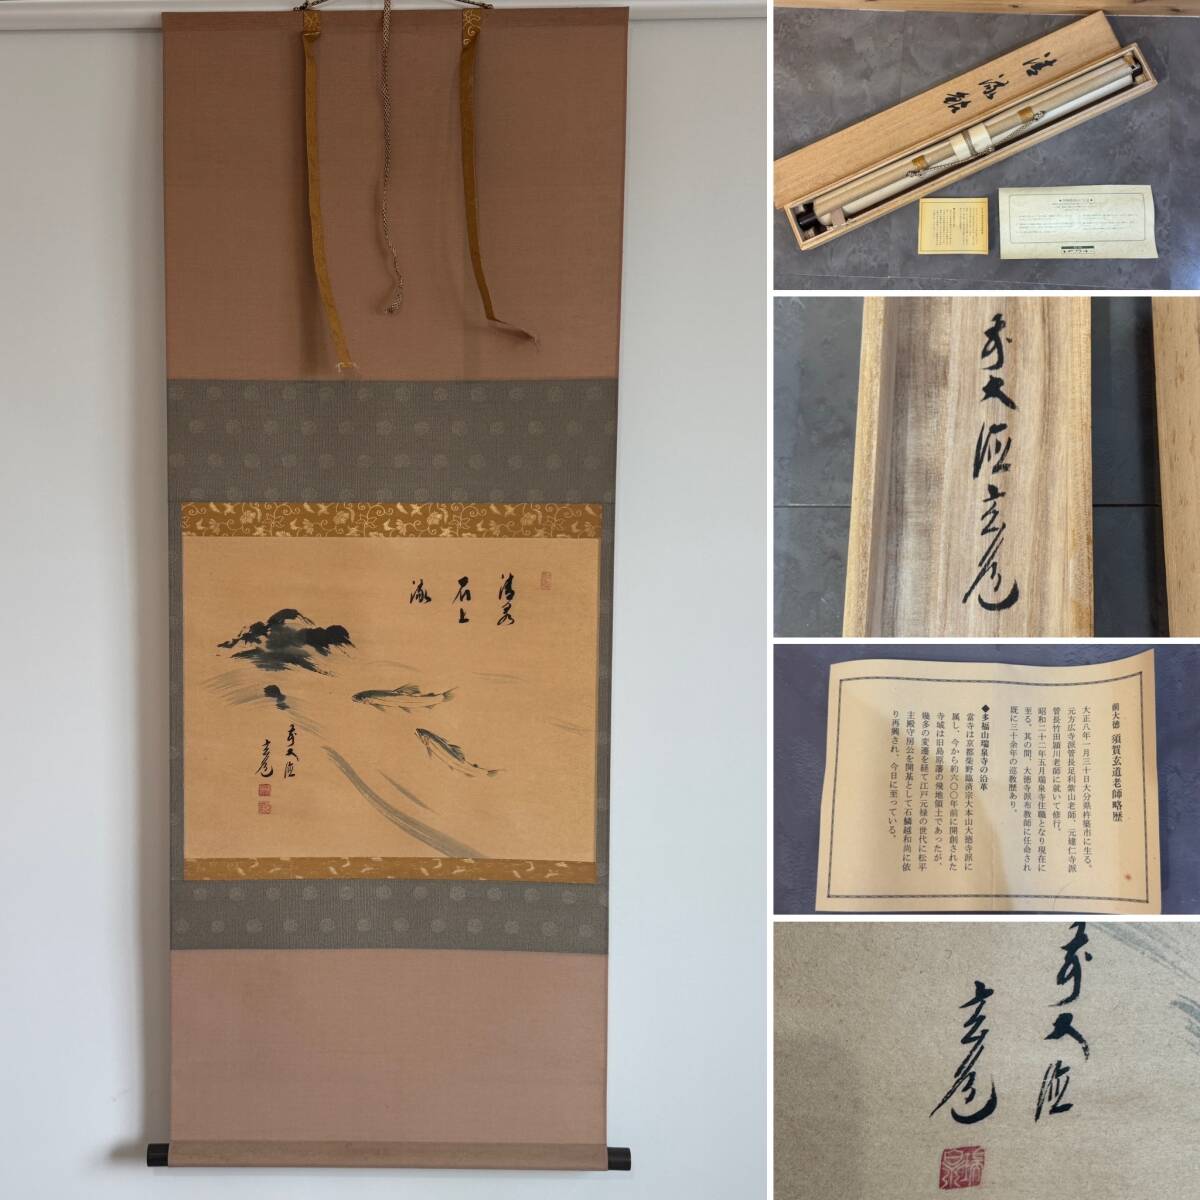 清泉
石上
流
前大徳
玄道
清流鮎
前大徳玄道
前大徳 須賀玄道老師略歴
大正八年一月三十日大分県杵築市に生る。
元方広寺派管長足利紫山老師、元建仁寺派
管長竹田頴川老師に就いて修行。
昭和二十二年五月瑞泉寺住職となり現在に
至る。其の間、大徳寺派布教師に任命され
既に三十余年の巡教歴あり。
◆多福山瑞泉寺の沿革
当寺は京都紫野臨済宗大本山大徳寺派に
属し、今から約六〇〇年前に開創された
寺域は旧島原藩の飛地領土であったが、
幾多の変遷を経て江戸元禄の世代に松平
主殿守房公を開基として石鱗越和尚に依
り再興され、今日に至っている。
前大徳
玄道